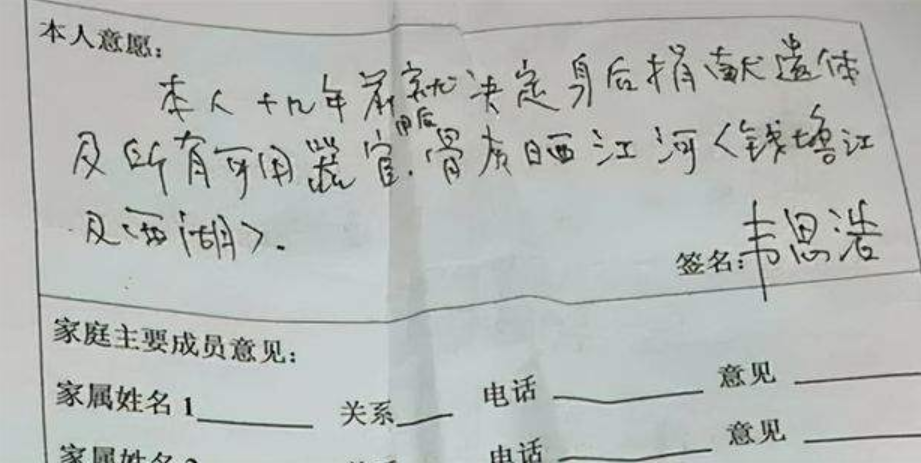 本人意愿：
本人十九年前就决定身后捐献遗体
及所有可用器官.用后骨灰晒江河<钱塘江
及西湖>.
签名：韦思浩
家庭主要成员意见：
家属姓名1______ 关系___ 电话______ 意见______
家属姓名2 关系 电话______ 意见______